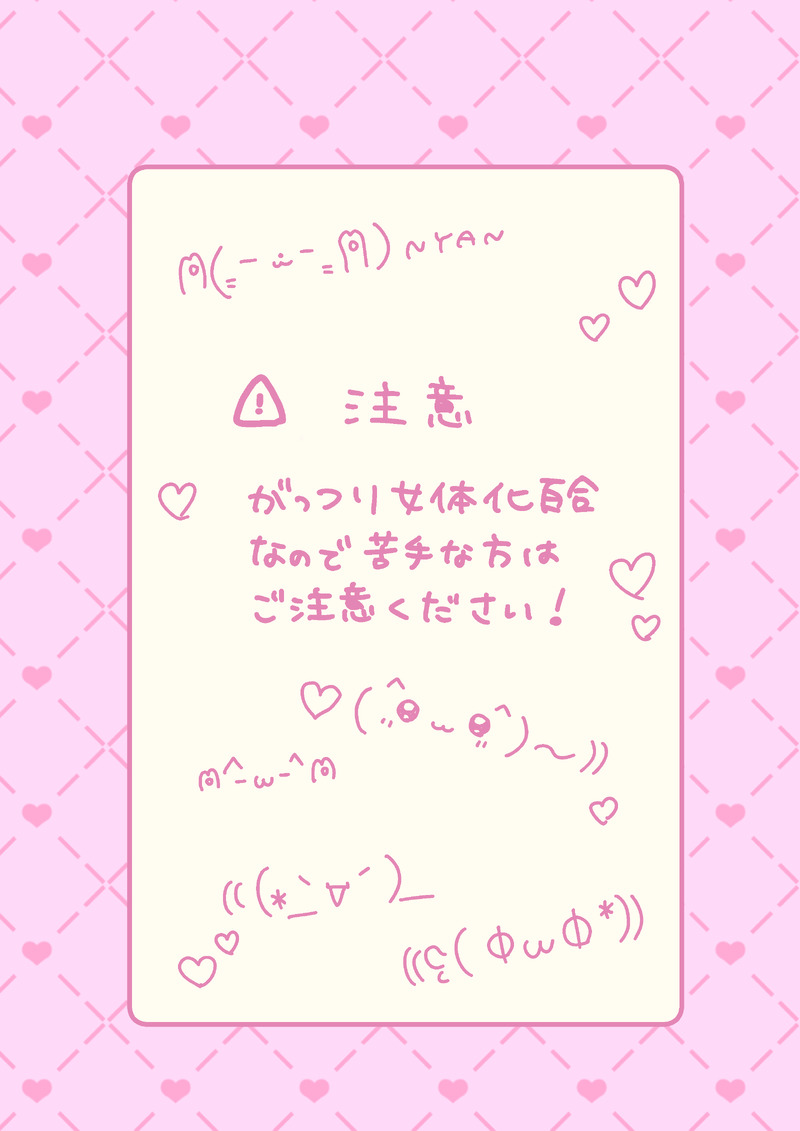 ฅ(₌ ̄ ω ̄₌ฅ) NYAN
注意
がっつり女体化百合
なので苦手な方は
ご注意ください！